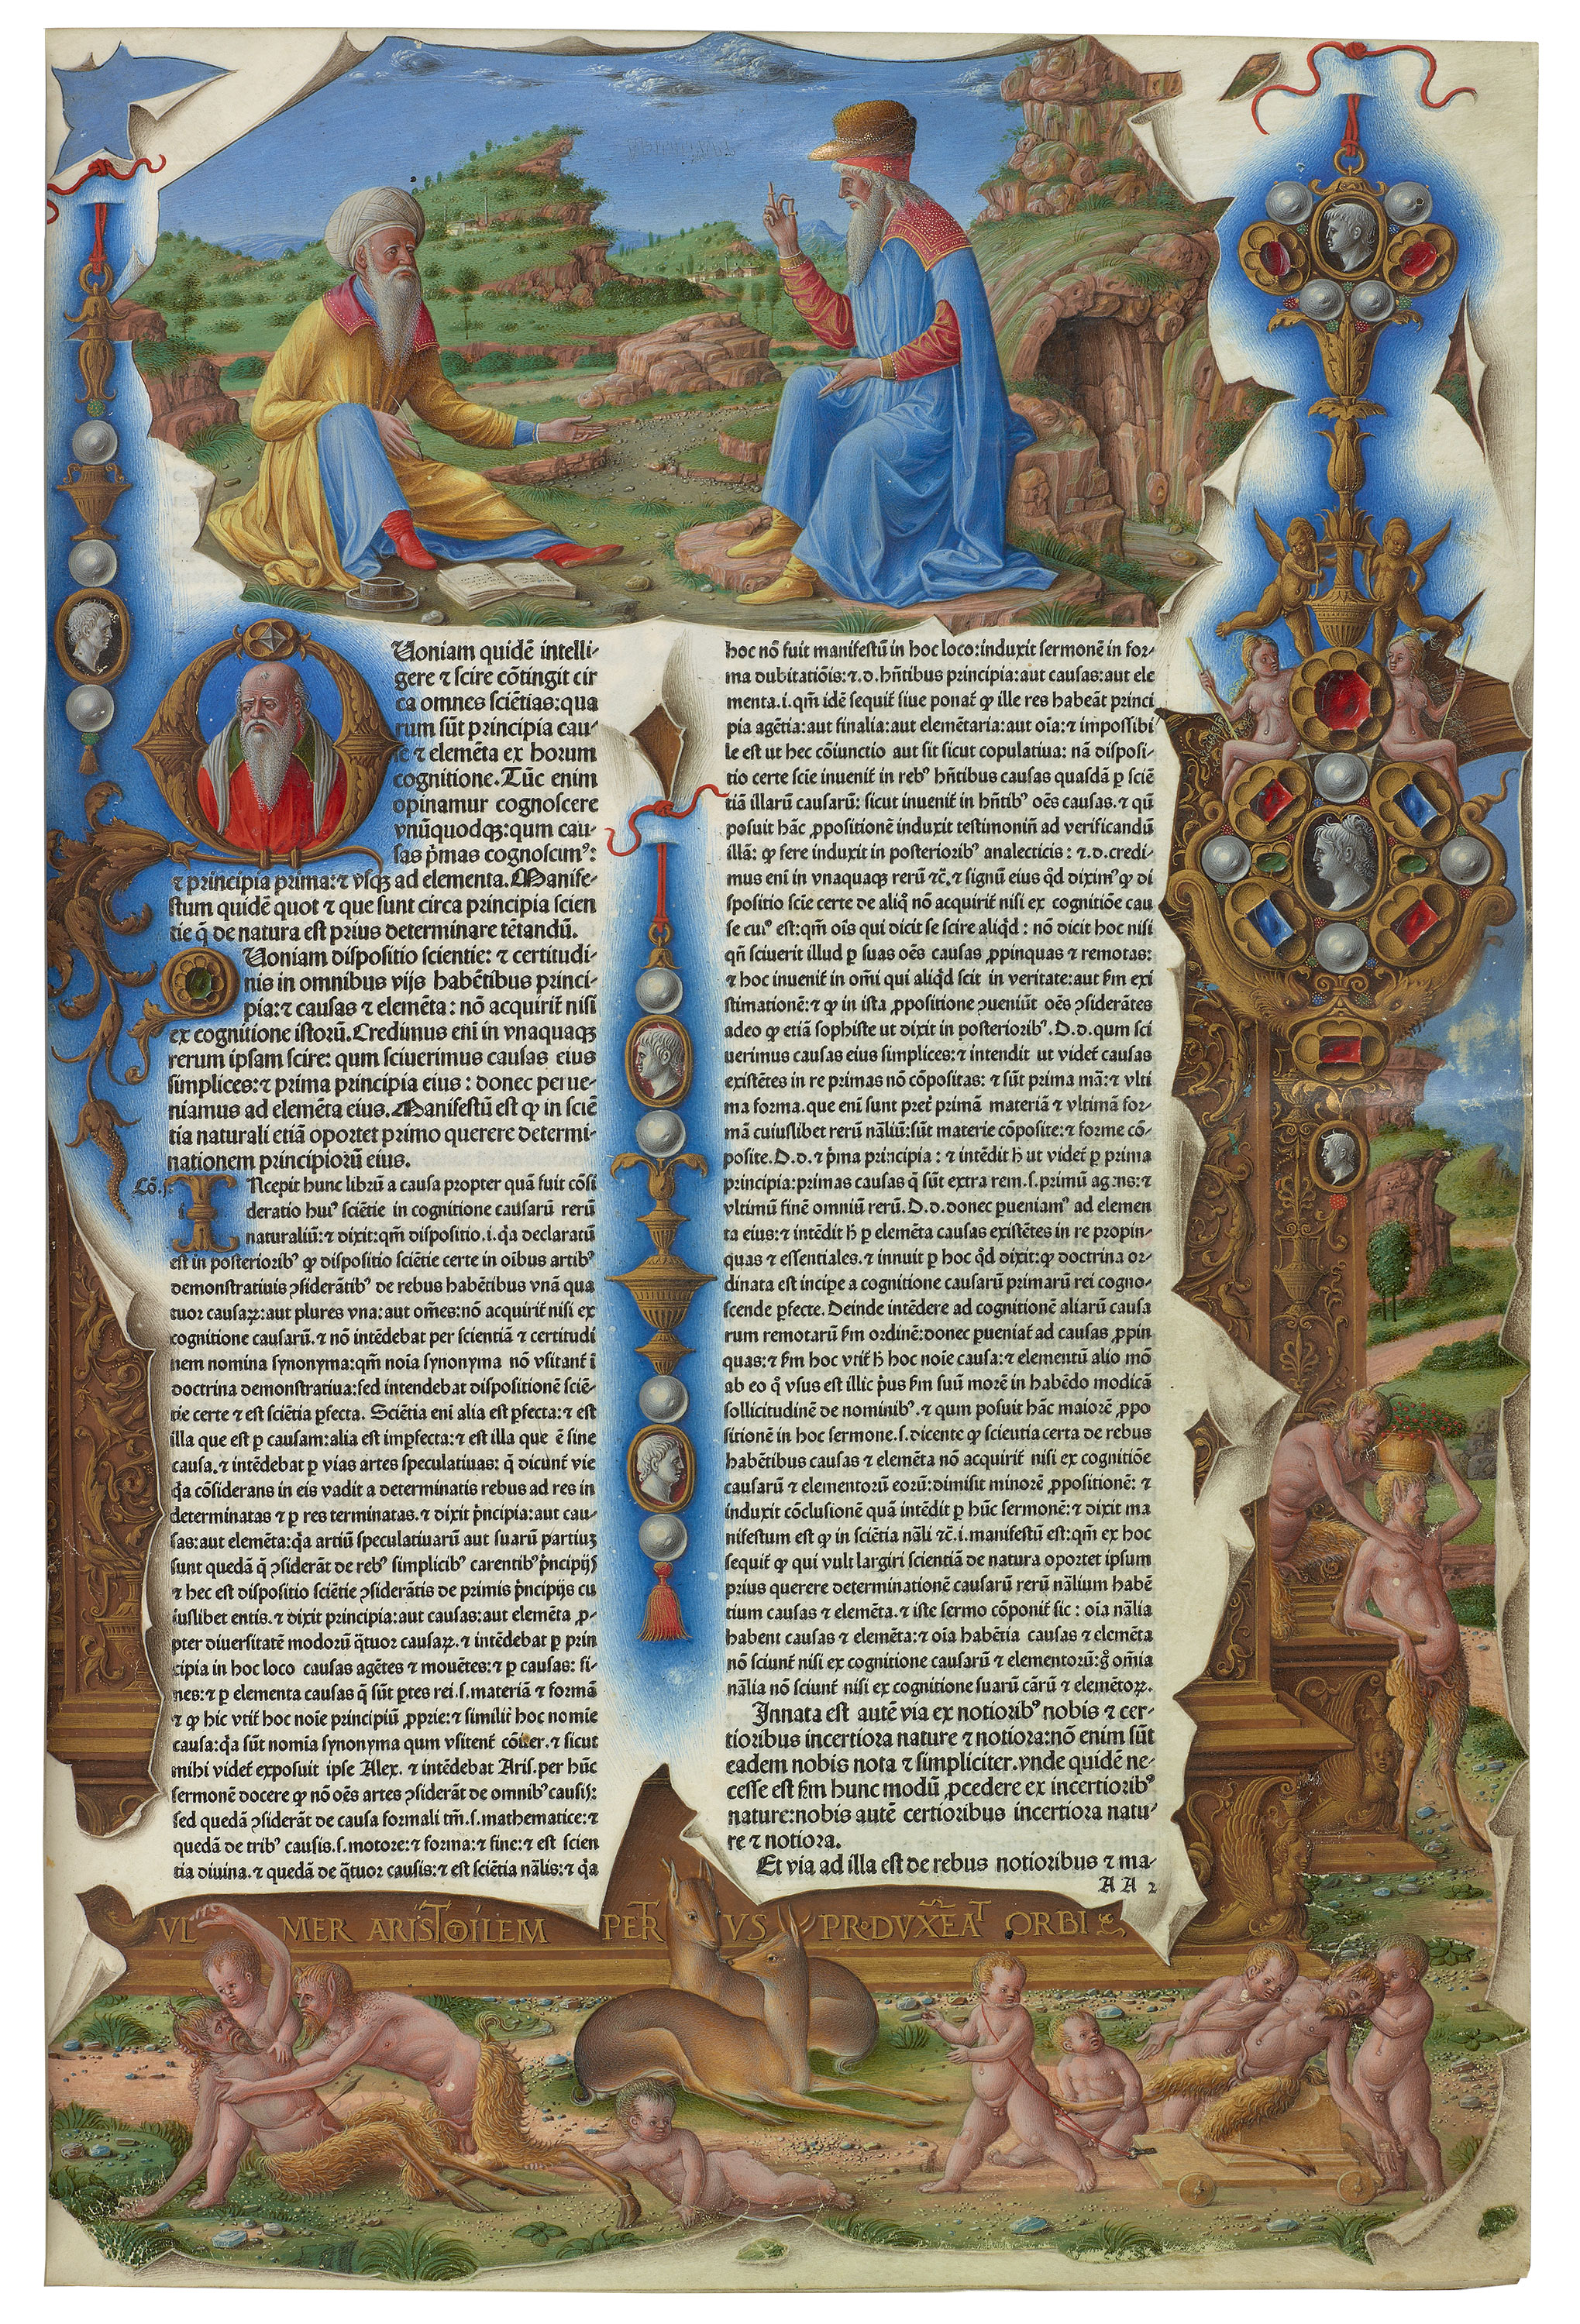 Uoniam quidē intelli-
gere ⁊ scire cōtingit cir
ca omnes sciētias: qua
rum sūt principia cau-
se ⁊ elemēta ex horum
cognitione. Tūc enim
opinamur cognoscere
vnūquodqꝫ: qum cau-
sas p̄mas cognoscimꝰ:
⁊ principia prima: ⁊ vsqꝫ ad elementa. Manife-
stum quidē quot ⁊ que sunt circa principia scien
tie q̄ de natura est prius determinare tētandū.
Quoniam dispositio scientie: ⁊ certitudi-
nis in omnibus vijs habētibus princi-
pia: ⁊ causas ⁊ elemēta: nō acquirit̄ nisi
ex cognitione istorū. Credimus eni in vnaquaqꝫ
rerum ipsam scire: qum sciuerimus causas eius
simplices: ⁊ prima principia eius: donec perue-
niamus ad elemēta eius. Manifestū est ꝙ in sciē
tia naturali etiā oportet primo querere determi-
nationem principiorū eius.
Cō. j.
INcepit hunc librū a causa propter quā fuit cōsi
deratio huiꝰ sciētie in cognitione causarū rerū
naturaliū: ⁊ dixit: qm̄ dispositio .i. q̄a declaratū
est in posterioribꝰ ꝙ dispositio sciētie certe in oībus artibꝰ
demonstratiuis ꝯsiderātibꝰ de rebus habētibus vnā qua
tuor causaꝝ: aut plures vna: aut om̄es: nō acquirit̄ nisi ex
cognitione causarū. ⁊ nō intēdebat per scientiā ⁊ certitudi
nem nomina synonyma: qm̄ noīa synonyma nō vsitant̄ ī
doctrina demonstratiua: sed intendebat dispositionē sciē-
tie certe ⁊ est sciētia ꝑfecta. Sciētia eni alia est ꝑfecta: ⁊ est
illa que est ꝑ causam: alia est imꝑfecta: ⁊ est illa que ē sine
causa. ⁊ intēdebat ꝑ vias artes speculatiuas: q̄ dicunt̄ vie
q̄a cōsiderans in eis vadit a determinatis rebus ad res in
determinatas ⁊ ꝑ res terminatas. ⁊ dixit p̄ncipia: aut cau-
sas: aut elemēta: q̄a artiū speculatiuarū aut suarū partiuꝫ
sunt quedā q̄ ꝯsiderāt de rebꝰ simplicibꝰ carentibꝰ p̄ncipijs
⁊ hec est dispositio sciētie ꝯsiderātis de primis p̄ncipijs cu
iuslibet entis. ⁊ dixit principia: aut causas: aut elemēta ꝓ-
pter diuersitatē modorū q̄tuor causaꝝ. ⁊ intēdebat ꝑ prin
cipia in hoc loco causas agētes ⁊ mouētes: ⁊ ꝑ causas: fi-
nes: ⁊ ꝑ elementa causas q̄ sūt ꝑtes rei .s. materiā ⁊ formā
⁊ ꝙ hic vtit̄ hoc noīe principiū ꝓprie: ⁊ similit̄ hoc nomīe
causa: q̄a sūt nomīa synonyma qum vsitent̄ cōiter. ⁊ sicut
mihi videt̄ exposuit ipse Alex. ⁊ intēdebat Aris. per hūc
sermonē docere ꝙ nō oēs artes ꝯsiderāt de omnibꝰ causis:
sed quedā ꝯsiderāt de causa formali tm̄ .s. mathematice: ⁊
quedā de tribꝰ causis .s. motore: ⁊ forma: ⁊ fine: ⁊ est scien
tia diuina. ⁊ quedā de q̄tuor causis: ⁊ est sciētia nālis: ⁊ q̄a
hoc nō fuit manifestū in hoc loco: induxit sermonē in for-
ma dubitatiōis: ⁊ .d. hn̄tibus principia: aut causas: aut ele
menta .i. qm̄ idē sequit̄ siue ponat̄ ꝙ ille res habeāt princi
pia agētia: aut finalia: aut elemētaria: aut oīa: ⁊ impossibi
le est ut hec cōiunctio aut sit sicut copulatiua: nā disposi-
tio certe scīe inuenit̄ in rebꝰ hn̄tibus causas quasdā ꝑ sciē
tiā illarū causarū: sicut inuenit̄ in hn̄tibꝰ oēs causas. ⁊ qū
posuit hāc ꝓpositionē induxit testimoniū ad verificandū
illā: ꝙ fere induxit in posterioribꝰ analecticis: ⁊ .d. credi-
mus eni in vnaquaqꝫ rerū ⁊c̄. ⁊ signū eius qd̄ diximꝰ ꝙ di
spositio scīe certe de aliq̄ nō acquirit̄ nisi ex cognitiōe cau
se cuiꝰ est: qm̄ oīs qui dicit se scire aliqd̄: nō dicit hoc nisi
qn̄ sciuerit illud ꝑ suas oēs causas ꝓpinquas ⁊ remotas:
⁊ hoc inuenit̄ in om̄i qui aliqd̄ scit in veritate: aut fm̄ exi
stimationē: ⁊ ꝙ in ista ꝓpositione ꝯueniūt oēs ꝯsiderātes
adeo ꝙ etiā sophiste ut dixit in posterioribꝰ. D. d. qum sci
uerimus causas eius simplices: ⁊ intendit ut videt̄ causas
existētes in re primas nō cōpositas: ⁊ sūt prima mā: ⁊ vlti
ma forma. que eni sunt pret̄ primā materiā ⁊ vltimā for-
mā cuiuslibet rerū nāliū: sūt materie cōposite: ⁊ forme cō-
posite. D. d. ⁊ p̄ma principia: ⁊ intēdit ħ ut videt̄ ꝑ prima
principia: primas causas q̄ sūt extra rem .s. primū agens: ⁊
vltimū finē omniū rerū. D. d. donec ꝑueniamꝰ ad elemen
ta eius: ⁊ intēdit ħ ꝑ elemēta causas existētes in re propin-
quas ⁊ essentiales. ⁊ innuit ꝑ hoc qd̄ dixit: ꝙ doctrina or-
dinata est incipe a cognitione causarū primarū rei cogno-
scende ꝑfecte. Deinde intēdere ad cognitionē aliarū causa
rum remotarū fm̄ ordinē: donec ꝑueniat̄ ad causas ꝓpin
quas: ⁊ fm̄ hoc vtit̄ ħ hoc noīe causa: ⁊ elementū alio mō
ab eo q̄ vsus est illic p̄us fm̄ suū morē in habēdo modicā
sollicitudinē de nominibꝰ. ⁊ qum posuit hāc maiorē ꝓpo
sitionē in hoc sermone .s. dicente ꝙ scieutia certa de rebus
habētibus causas ⁊ elemēta nō acquirit̄ nisi ex cognitiōe
causarū ⁊ elementorū eorū: dimisit minorē ꝓpositionē: ⁊
induxit cōclusionē quā intēdit ꝑ hūc sermonē: ⁊ dixit ma
nifestum est ꝙ in sciētia nāli ⁊c̄. i. manifestū est: qm̄ ex hoc
sequit̄ ꝙ qui vult largiri scientiā de natura oportet ipsum
prius querere determinationē causarū rerū nālium habē
tium causas ⁊ elemēta. ⁊ iste sermo cōponit̄ sic: oīa nālia
habent causas ⁊ elemēta: ⁊ oīa habētia causas ⁊ elemēta
nō sciunt̄ nisi ex cognitione causarū ⁊ elementorū: g̊ om̄ia
nālia nō sciunt̄ nisi ex cognitione suarū cārū ⁊ elemētoꝝ.
Innata est autē via ex notioribꝰ nobis ⁊ cer-
tioribus incertiora nature ⁊ notiora: nō enim sūt
eadem nobis nota ⁊ simpliciter. vnde quidē ne-
cesse est fm̄ hunc modū ꝓcedere ex incertioribꝰ
nature: nobis autē certioribus incertiora natu-
re ⁊ notiora.
Et via ad illa est de rebus notioribus ⁊ ma-
AA 2
VL MER ARISTOTILEM PETR VS PRODVXERAT ORBI